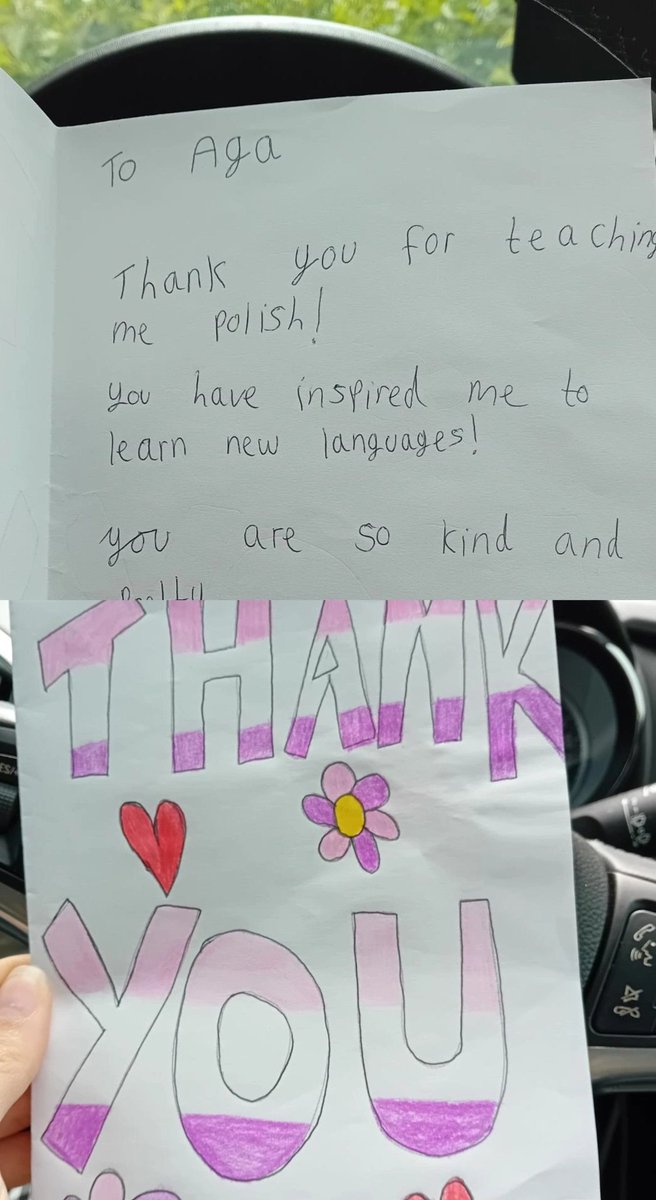 To Aga
Thank you for teaching
me polish!
you have inspired me to
learn new languages!
you are so kind and
THANK
YOU